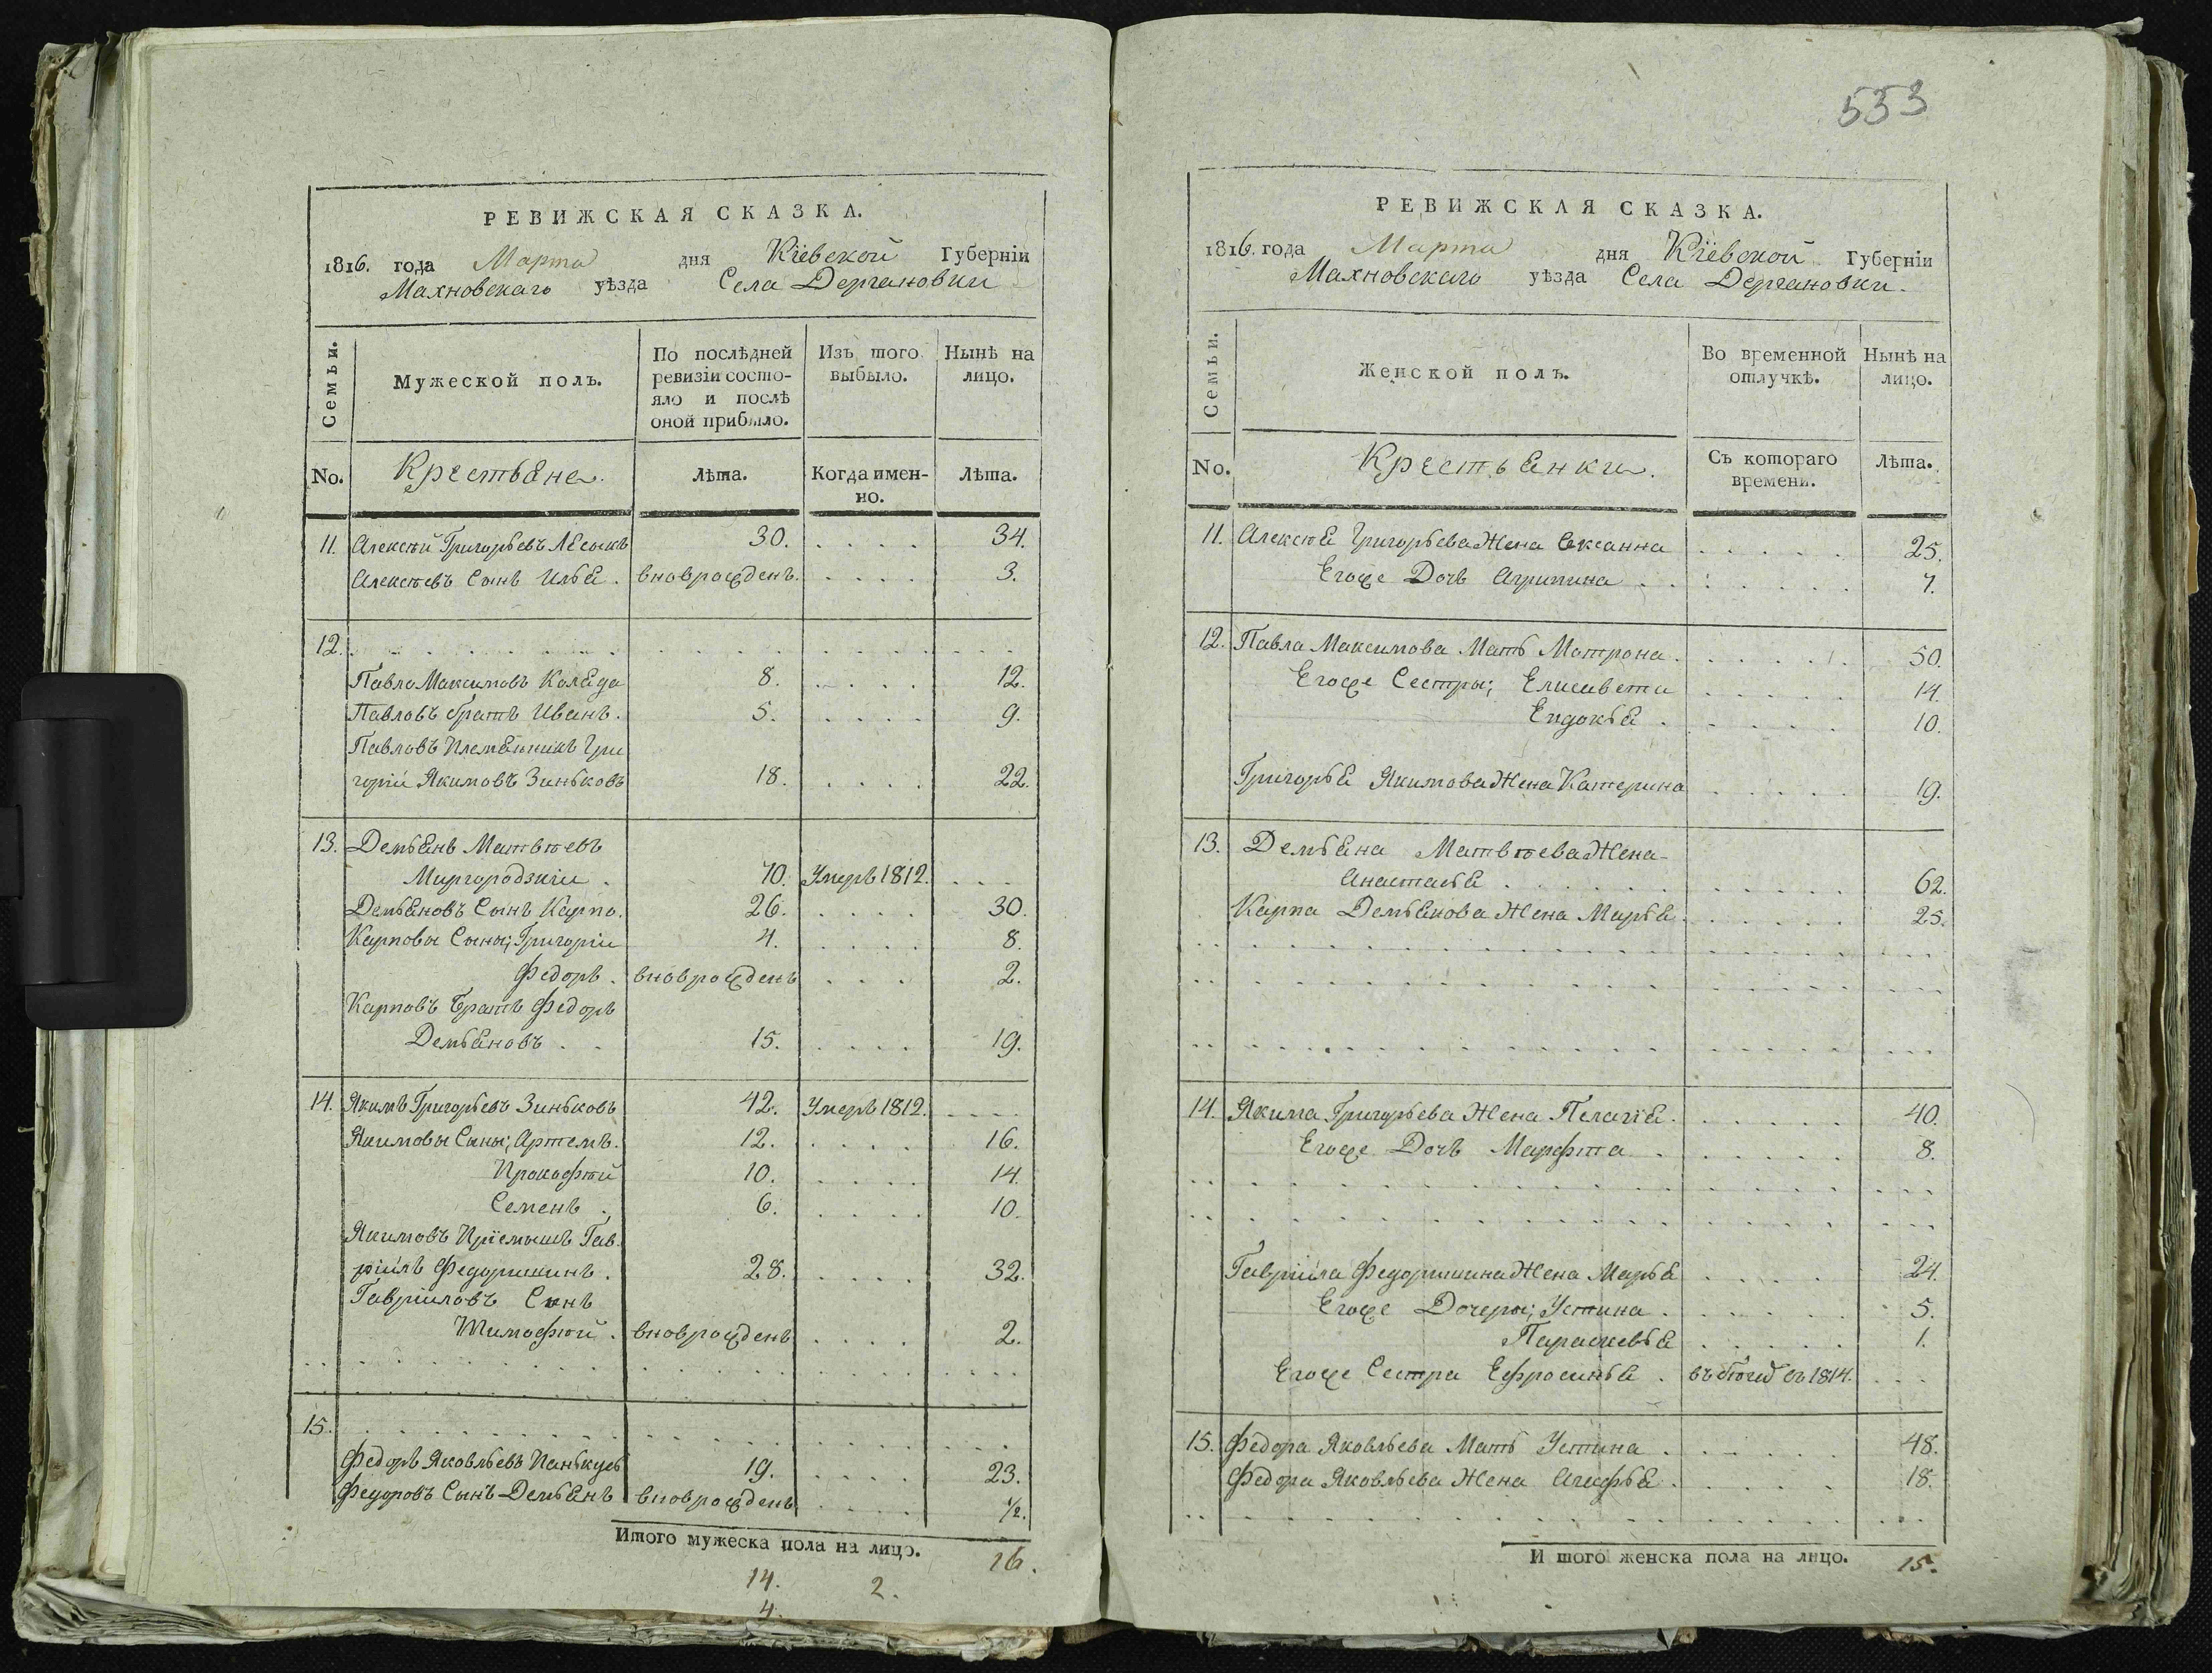 РЕВИЖСКАЯ СКАЗКА.
1816. года Марта дня Кіевской Губерніи
Махновскаго уѣзда Села Дергановки
Семьи.
Мужеской полъ.
По послѣдней ревизіи состо-
яло и послѣ
оной прибыло.
Изъ того выбыло.
Нынѣ на лицо.
No.
Крестьяне.
Лѣта.
Когда имен-
но.
Лѣта.
11. Алексѣй Григорьевъ 30. 34.
Алексѣевъ Сынъ Илья. вновьрожденъ. 3.
12.
Павло Максимовъ Коляда 8. 12.
Павловъ братъ Иванъ. 5. 9.
Павловъ Племянникъ Гри
горій Якимовъ Зиньковъ 18. 22.
13. Демьянъ Матвѣевъ
Миргородзкіи. 70. Умеръ 1812.
Демьяновъ Сынъ Карпо. 26. 30.
Карповы Сыны; Григоріи 4. 8.
Федоръ. вновьрожденъ 2.
Карповъ Братъ Федоръ
Демьяновъ. 15. 19.
14. Якимъ Григорьевъ Зиньковъ 42. Умеръ 1812.
Якимовы Сыны; Артемъ. 12. 16.
Прокофѣй 10. 14.
Семенъ. 6. 10.
Якимовъ Пріемышъ Гав
ріилъ Федоришинъ. 28. 32.
Гавріиловъ Сынъ
Тимофѣй. вновьрожденъ 2.
15.
Федоръ Яковлевъ 19. 23.
Федоровъ Сынъ Демьянъ вновьрожденъ 1/2.
Итого мужеска пола на лицо. 16.
14. 2.
4.
533
РЕВИЖСКАЯ СКАЗКА.
1816. года Марта дня Кіевской Губерніи
Махновскаго уѣзда Села Дергановки.
Семьи.
Женской полъ.
Во временной отлучкѣ.
Нынѣ на лицо.
No.
Крестьянки.
Съ котораго времени.
Лѣта.
11. Алексѣя Григорьева Жена Оксанна 25.
Егоже Дочь Агрипина 7.
12. Павла Максимова Мать Мотрона. 50.
Егоже Сестры; Елисавета 14.
Евдокья. 10.
Григорья Якимова Жена Катерина 19.
13. Демьяна Матвѣева Жена
Анастасья 62.
Карпа Демьянова Жена Марья. 25.
14. Якима Григорьева Жена Пелагія. 40.
Егоже Дочь Марфта. 8.
Гавріила Федоришина Жена Марья 24.
Егоже Дочеры; Устина. 5.
Параскевья 1.
Егоже Сестра Ефросинья. 1814.
15. Федора Яковлева Мать Устина. 48.
Федора Яковлева Жена Агафья. 18.
Итого женска пола на лицо. 15.